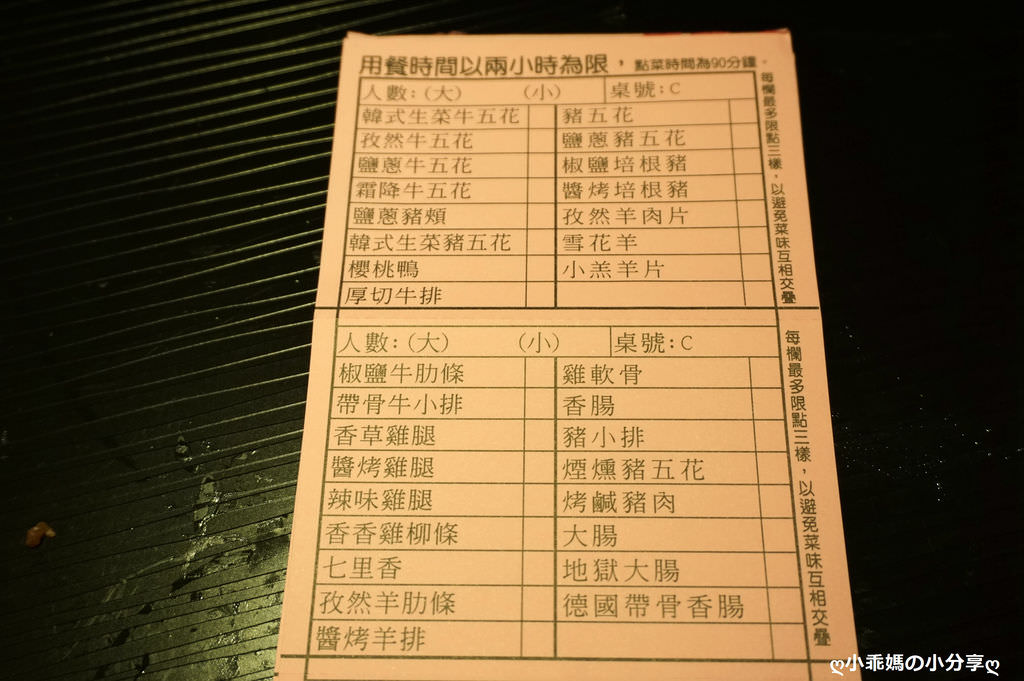 用餐時間以兩小時為限，點菜時間為90分鐘。
人數:(大) (小) 桌號:C
韓式生菜牛五花 豬五花
孜然牛五花 鹽蔥豬五花
鹽蔥牛五花 椒鹽培根豬
霜降牛五花 醬烤培根豬
鹽蔥豬頰 孜然羊肉片
韓式生菜豬五花 雪花羊
櫻桃鴨 小羔羊片
厚切牛排
每欄最多限點三樣，以避免菜味互相交疊
人數:(大) (小) 桌號:C
椒鹽牛肋條 雞軟骨
帶骨牛小排 香腸
香草雞腿 豬小排
醬烤雞腿 煙燻豬五花
辣味雞腿 烤鹹豬肉
香香雞柳條 大腸
七里香 地獄大腸
孜然羊肋條 德國帶骨香腸
醬烤羊排
每欄最多限點三樣，以避免菜味互相交疊
ღ小乖媽の小分享ღ